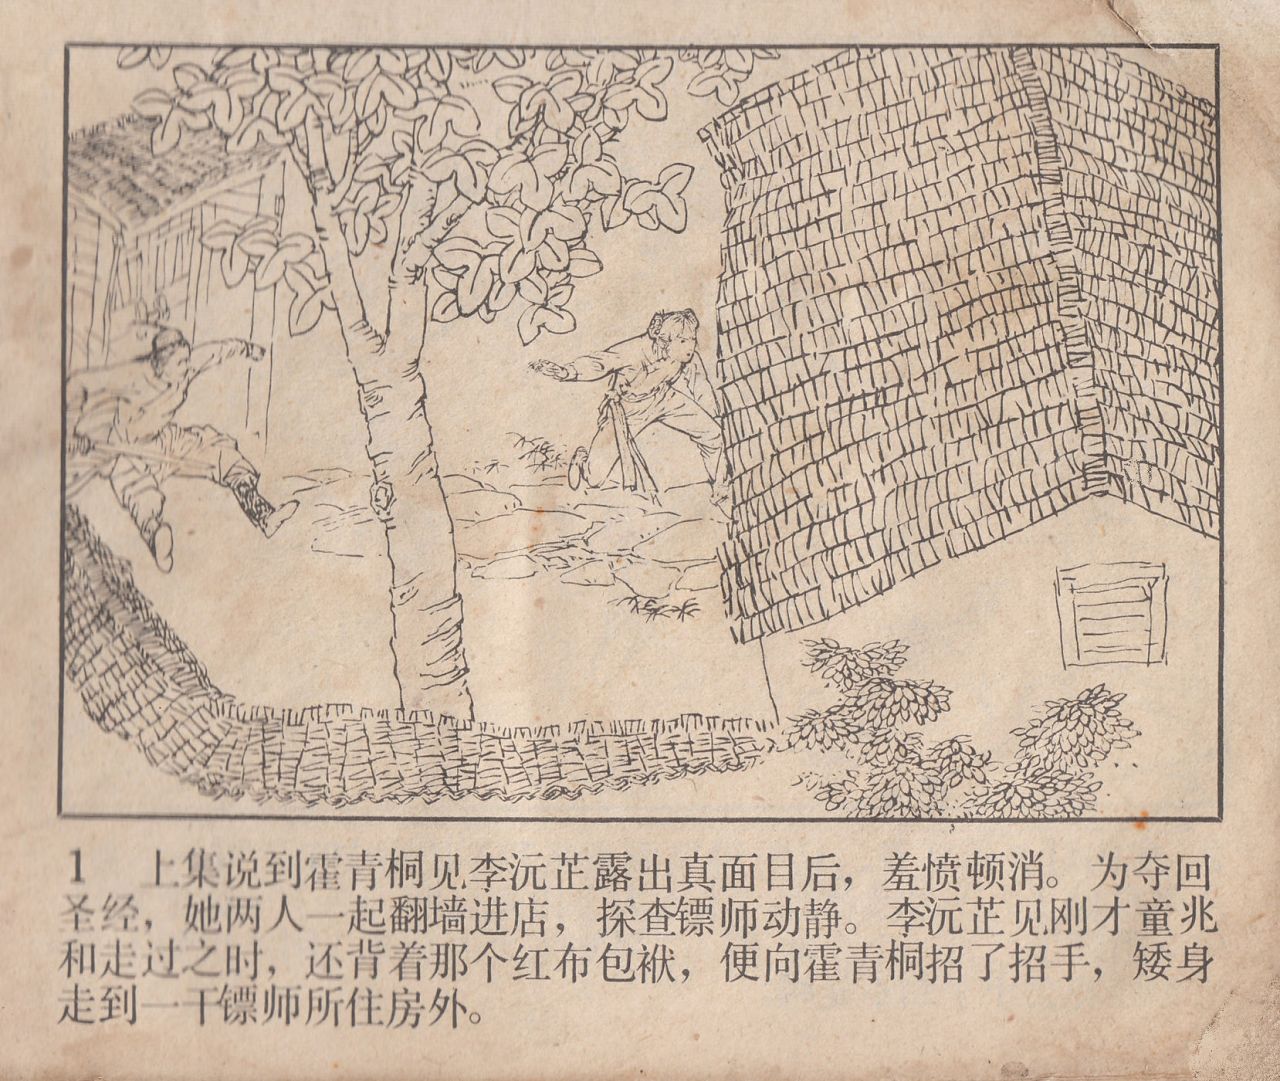 1 上集说到霍青桐见李沅芷露出真面目后，羞愤顿消。为夺回
圣经，她两人一起翻墙进店，探查镖师动静。李沅芷见刚才童兆
和走过之时，还背着那个红布包袱，便向霍青桐招了招手，矮身
走到一干镖师所住房外。